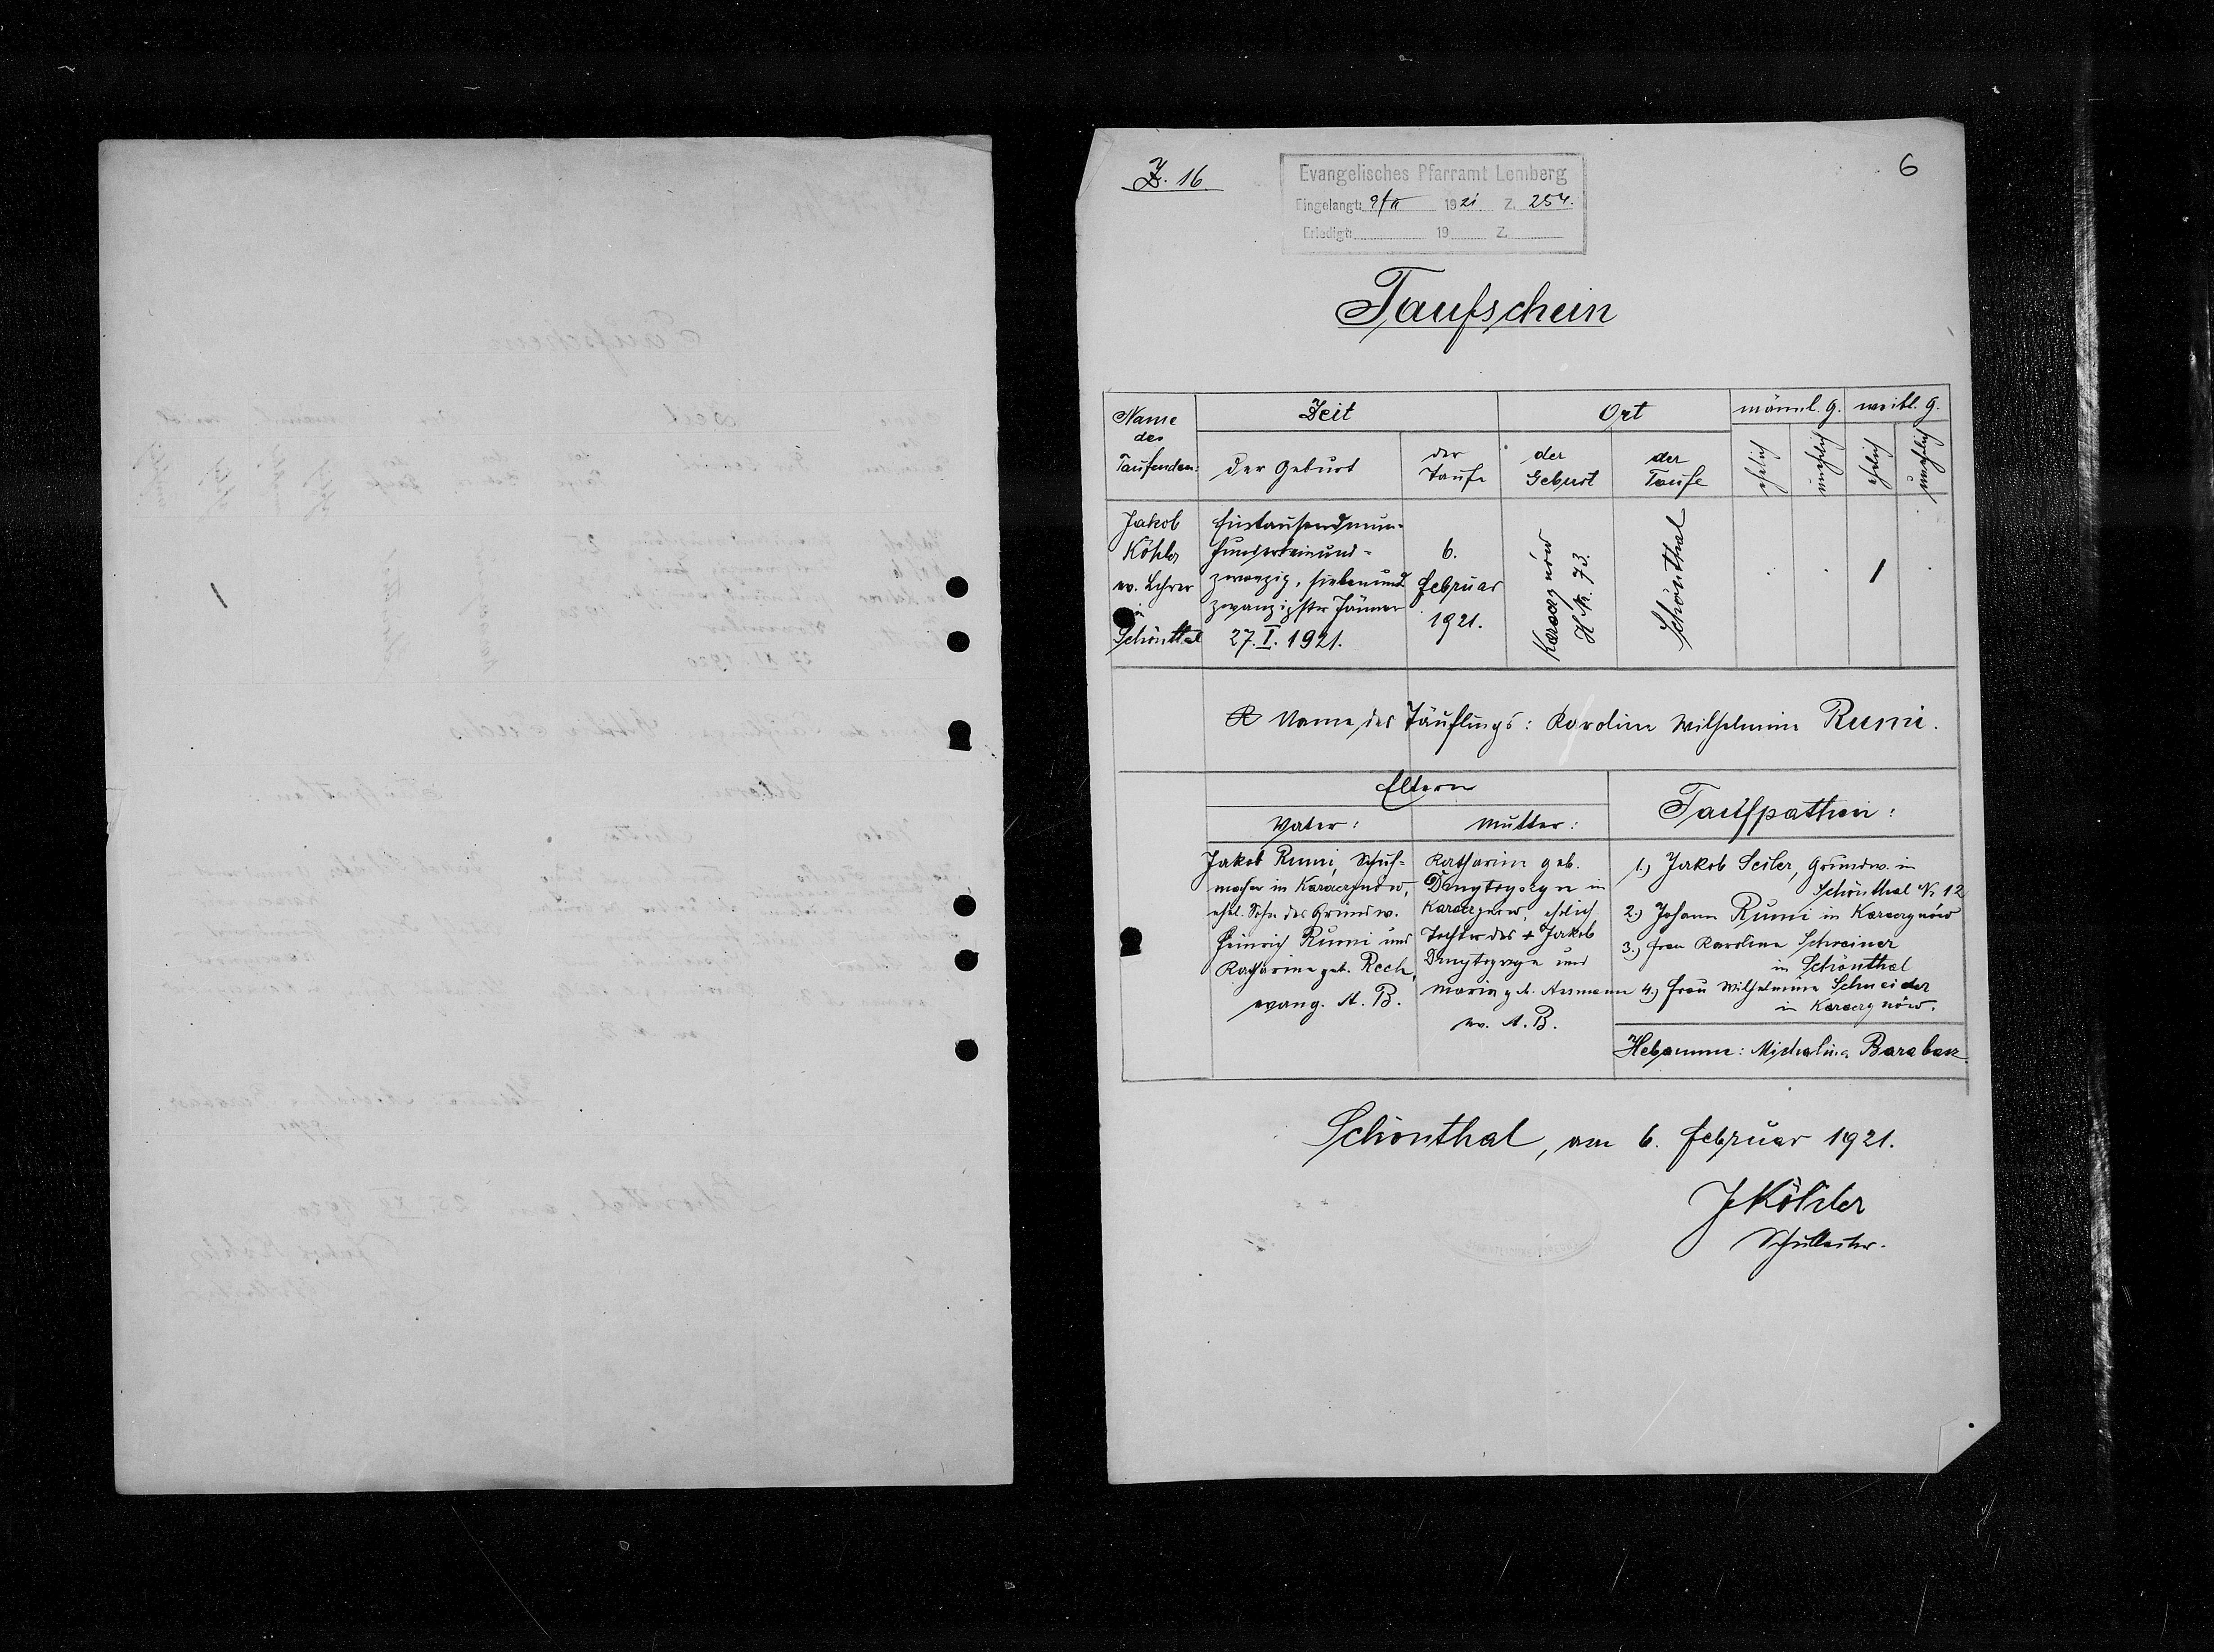 Z. 16.
6
Evangelisches Pfarramt Lemberg
Eingelangt: 9/II 1921 Z. 254.
Erledigt: 19 Z.
Taufschein
Name
des
Taufenden:
Zeit
Ort
männl. G.
weibl. G.
der Geburt
der
Taufe
der
Geburt
der
Taufe
ehelich
unehelich
ehelich
unehelich
Jakob
Köhler
ev. Lehrer
in
Schönthal
Eintausendneun-
hunderteinund-
zwanzig, siebenund
zwanzigster Jänner
27. I. 1921.
6.
Februar
1921.
Karaczynów
H. Nr. 73.
Schönthal
1
Name des Täuflings: Karoline Wilhelmine Rumi.
Eltern
Vater:
Mutter:
Taufpathen:
Jakob Rumi, Schuh-
macher in Karaczynów,
ehel. Sohn des Grundw.
Heinrich Rumi und
Katharina geb. Rech,
evang. A. B.
Katharina geb.
in
Karaczynów, ehelich
Tochter des + Jakob
und
Maria geb. Assmann
ev. A. B.
1.) Jakob Seiler, Grundw. in
Schönthal Nr 12
2.) Johann Rumi in Karaczynów
3.) Frau Karolina Schreiner
in Schönthal
4.) Frau Wilhelmine Schneider
in Karaczynów.
Hebamme: Michalina Barabasz
Schönthal, am 6. Februar 1921.
JKöhler
Schulleiter.